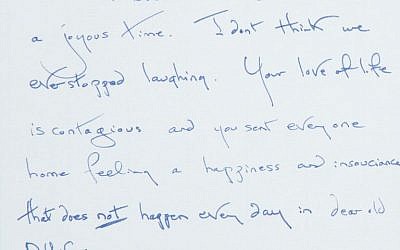 a joyous time. I dont think we
ever stopped laughing. Your love of life
is contagious and you sent everyone
home feeling a happiness and insouciance
that does not happen every day in dear old